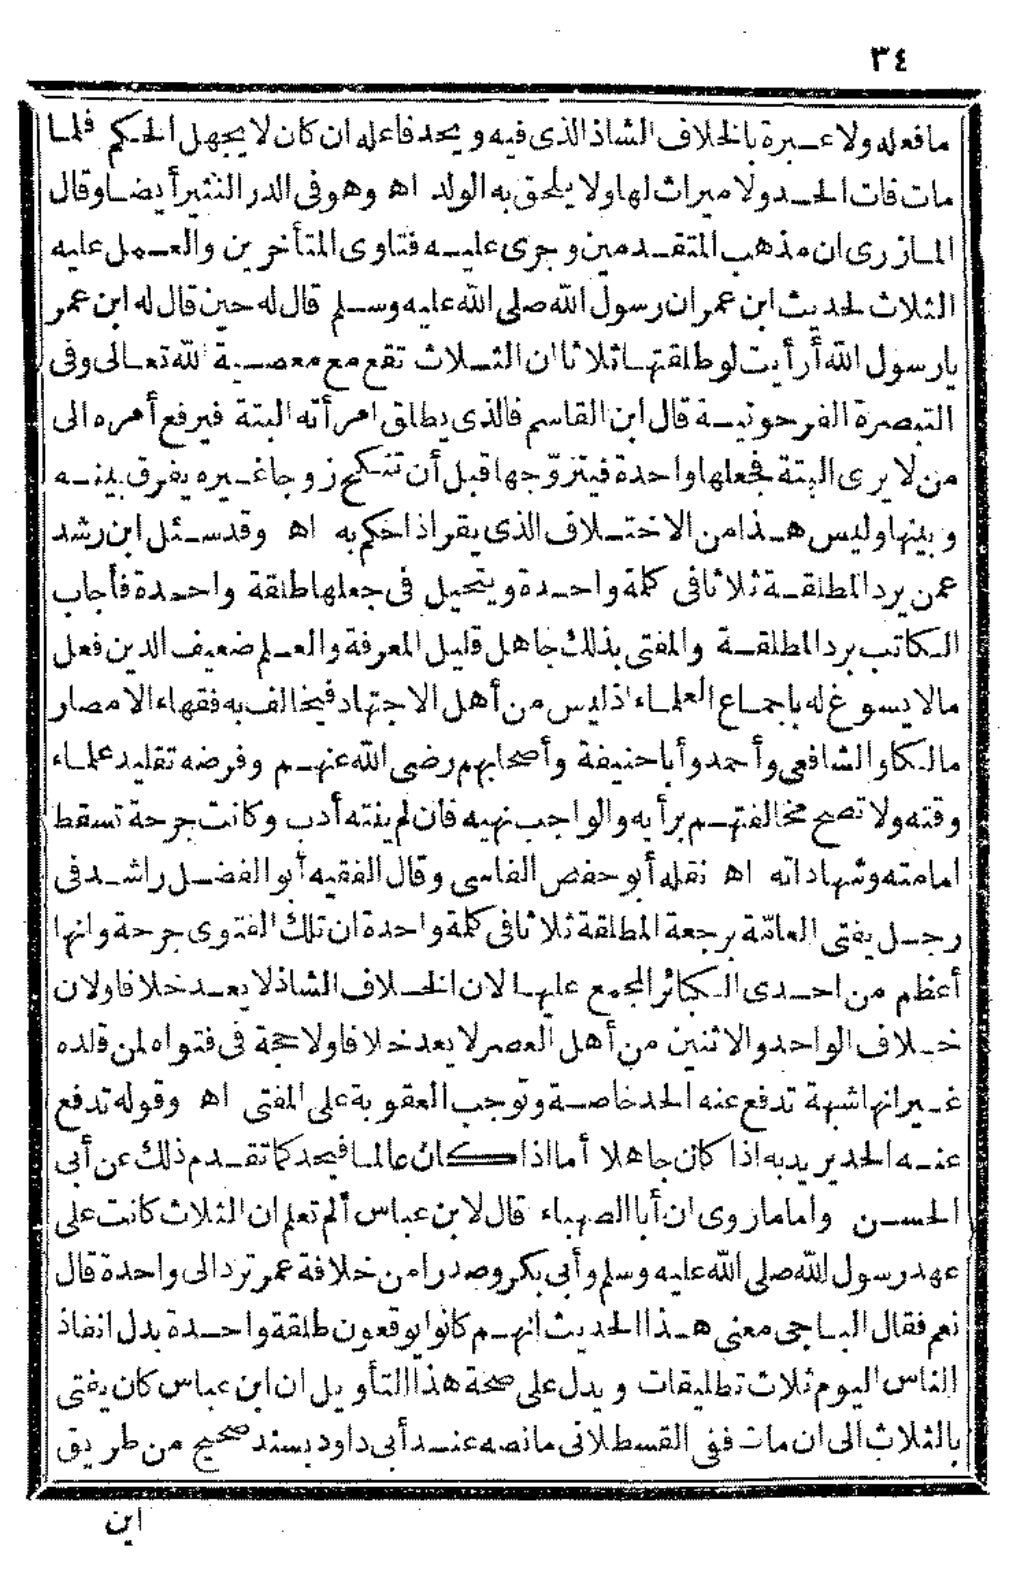 ٣٤
ما فعله ولا عبرة بالخلاف الشاذ الذى فيه ويحد فاعله ان كان لا يجهل الحكم فلما
مات فات الحد ولا ميراث لها ولا يلحق به الولد اه وهو فى الدر النثير أيضا وقال
المازرى ان مذهب المتقدمين وجرى عليه فتاوى المتأخرين والعمل عليه
الثلاث لحديث ابن عمر ان رسول الله صلى الله عليه وسلم قال له حين قال له ابن عمر
يارسول الله أرأيت لو طلقتها ثلاثا ان الثلاث تقع مع معصية لله تعالى وفى
التبصرة الفرحونية قال ابن القاسم فالذى يطلق امرأته البتة فيرفع أمره الى
من لا يرى البتة فجعلها واحدة فيتزوّجها قبل أن تنكح زوجا غيره يفرق بينه
وبينها وليس هذا من الاختلاف الذى يقر اذا حكم به اه وقد سئل ابن رشد
عمن يرد المطلقة ثلاثا فى كلمة واحدة ويتحيل فى جعلها طلقة واحدة فأجاب
الكاتب برد المطلقة والمفتى بذلك جاهل قليل المعرفة والعلم ضعيف الدين فعل
مالا يسوغ له باجماع العلماء اذ ليس من أهل الاجتهاد فيخالف به فقهاء الامصار
مالكا والشافعى وأحمد وأبا حنيفة وأصحابهم رضى الله عنهم وفرضه تقليد علماء
وقته ولا تصح مخالفتهم برأيه والواجب نهيه فان لم ينته أدب وكانت جرحة تسقط
امامته وشهاداته اه نقله أبو حفص الفاسى وقال الفقيه أبو الفضل راشد فى
رجل يفتى العامّة برجعة المطلقة ثلاثا فى كلمة واحدة ان تلك الفتوى جرحة وانها
أعظم من احدى الكبائر المجمع عليها لان الخلاف الشاذ لا يعد خلافا ولان
خلاف الواحد والاثنين من أهل العصر لا يعد خلافا ولا حجة فى فتواه لمن قلده
غير انها شبهة تدفع عنه الحد خاصة وتوجب العقوبة على المفتى اه وقوله تدفع
عنه الحد يريد به اذا كان جاهلا أما اذا كان عالما فيحد كما تقدم ذلك عن أبى
الحسن واما ما روى ان أبا الصهباء قال لابن عباس ألم تعلم ان الثلاث كانت على
عهد رسول الله صلى الله عليه وسلم وأبى بكر وصدرا من خلافة عمر ترد الى واحدة قال
نعم فقال الباجى معنى هذا الحديث انهم كانوا يوقعون طلقة واحدة بدل انفاذ
الناس اليوم ثلاث تطليقات ويدل على صحة هذا التأويل ان ابن عباس كان يفتى
بالثلاث الى ان مات ففى القسطلانى مانصه عند أبى داود بسند صحيح من طريق
ابن